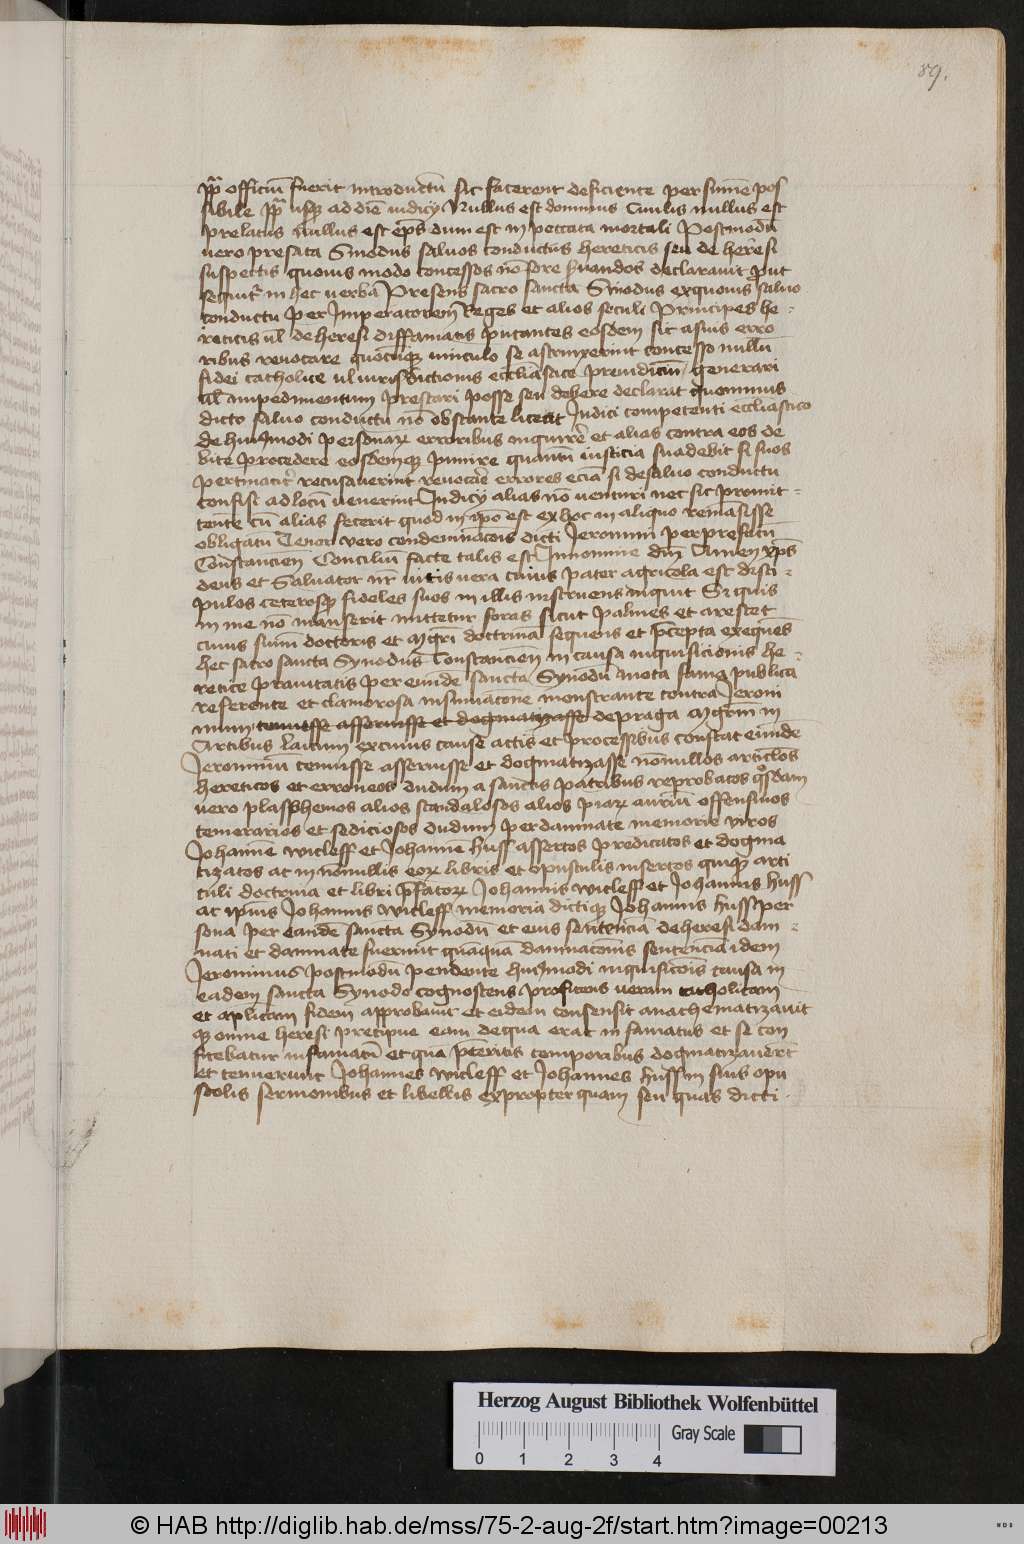 89.
ppt̄ officiū fuerit introductū sic facerent deficiente per sūmē pos
sibile ppt̄ usqȝ ad diē iudicij Nullus est dominus Ciuilis nullus est
prelatus Nullus est ep̄s dum est in peccata mortali Postmodū
uero prefata Sinodus saluos conductus hereticis seu de heresi
suspectis quouis modo concessos nō fore seruandos declarauit prout
sequit᷑ in hec uerba Presens sacro sancta Sinodus ex quouis saluo
conductu per Imperatorem Reges et alios seculi Principes he-
reticis ul̄ de heresi diffamatis putantes eosdem sic a suis erro
ribus reuocare quocūqȝ uinculo se astrinxerint concesso nullū
fidei catholice ul̄ iurisdictionis ecclīasace preiudiciū generari
ul̄ impedimentum prestari posse seu debere declarat quominus
dicto saluo conductu nō obstante liceat Iudici competenti eccliastico
de huiusmodi personaꝝ erroribus inquirē et alias contra eos de
bite procedere eosdemqȝ punire quantū iusticia suadebit si suos
pertinacit᷑ recusauerint reuocare errores eciā si de saluo conductu
confisi ad locū uenerint Iudicij alias nō uenturi nec sic promit-
tente cū alias fecerit quod in ip̄o est ex hoc in aliquo remāsisse
obligatū Tenor vero condemnac̄ois dicti Jeronimi per prefatū
Constancien̄ Conciliū facte talis est In nomine dm̄ Amen xp̄s
deus et Saluator nr̄ uitis uera cuius pater agricola est disci-
pulos ceterosqȝ fideles suos in illis instruens inquit Si quis
in me nō manserit mittetur foras sicut palmes et arescet
cuius sūmi doctoris et mgr̄i doctrinā sequens et p̄cepta exequēs
hec sacro sancta Synodus Constancien̄ in causa inquisicionis he-
retice prauitatis per eandē sancta Synodū mota fama publica
referente et clamorosa insinuac̄one monstrante contra Jeroni
mum tenuisse asseruisse et dogmatizasse de praga mgr̄m in
Artibus laicum ex cuius cause actis et processibus constat eundē
Jeronimū tenuisse asseruisse et dogmatizasse nōnullos articlos
hereticos et erroneos dudum a sanctis patribus reprobatos qosdam
uero plasphemos alios scandalosos alios piaꝝ auriū offensiuos
temerarios et sediciosos dudum per damnate memorie viros
Johannē witleff et Johannē Huss assertos predicatos et dogma
tizatos ac in nōnullis eoꝝ libris et opusculis insertos quiqȝ arti
culi doctrina et libri p̄fatoꝝ Johannis witleff et Johannis Huss
ac ip̄ius Johannis witleff memoria dictiqȝ Johannis Huss per
sona per eandē sancta Synodū et eius sentenciā de heresi dam-
nati et damnate fuerunt quāquā damnac̄onis sentencia idem
Jeronimus postmodū pendente huiusmodi inquisic̄ois causa in
eadem sancta Synodo cognoscens profitens ueram catholicam
et ap̄licam fidem approbauit et eidem consensit anathematizauit
qȝ omne heresi precipue eam de qua erat infamatus et se con
fitebatur infamatū et quā p̄teritis temporibus dogmatizauerūt
et tenuerunt Johannes witleff et Johannes Huss in suis opu
scolis sermonibus et libellis ex propter quam seu quas dicti
Herzog August Bibliothek Wolfenbüttel
Gray Scale
0 1 2 3 4
© HAB http://diglib.hab.de/mss/75-2-aug-2f/start.htm?image=00213